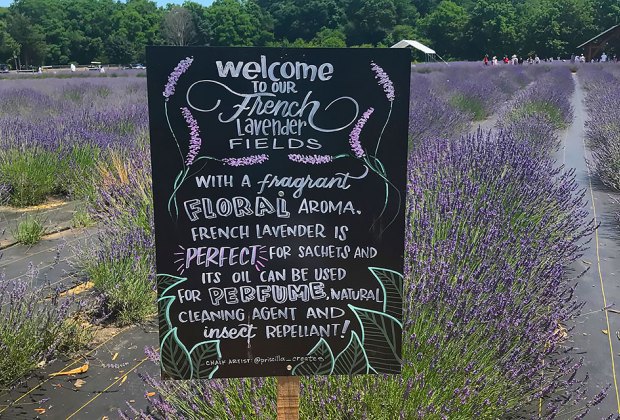 welcome
TO OUR
French
lavender
FIELDS
WITH A fragrant
FLORAL AROMA.
FRENCH LAVENDER IS
PERFECT FOR SACHETS AND
ITS OIL CAN BE USED
FOR PERFUME, NATURAL
CLEANING AGENT AND
insect REPELLANT!
CHALK ARTIST: @priscilla_creates